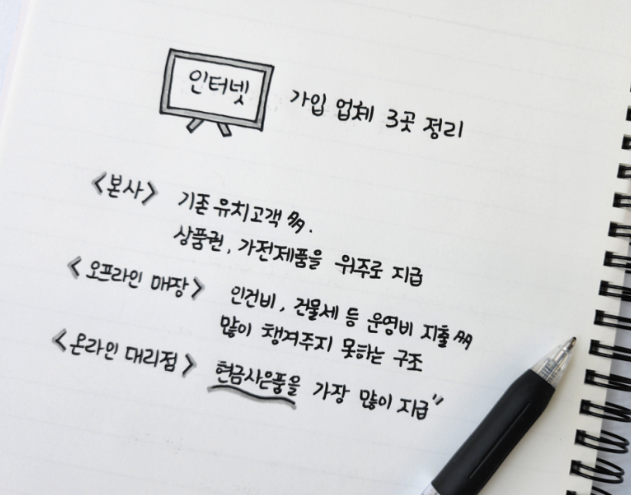 인터넷 가입 업체 3곳 정리
<본사> 기존 유치고객 多.
상품권, 가전제품을 위주로 지급
<오프라인 매장> 인건비, 건물세 등 운영비 지출 多
많이 챙겨주지 못하는 구조
<온라인 대리점> 현금사은품을 가장 많이 지급"